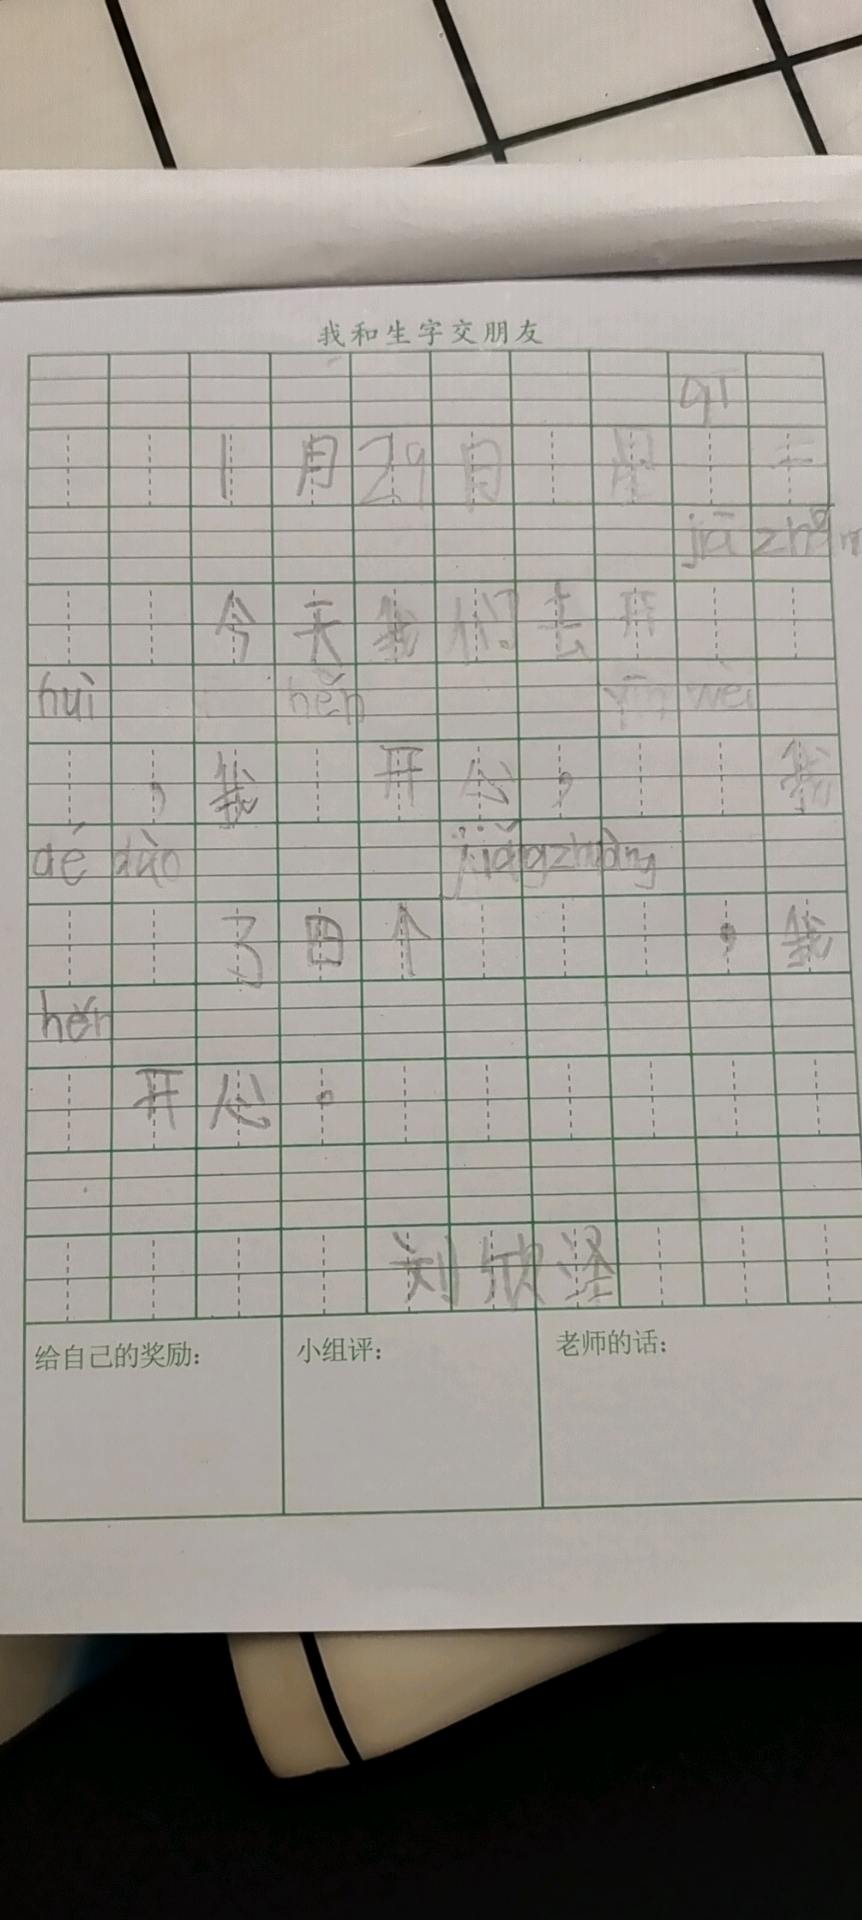 我和生字交朋友
qī
1月29日 星 二
jiā zhǎng
今天我们去开
huì hěn yīn wèi
，我 开心， 我
dé dào jiǎng zhuàng
了四个 ，我
hěn
开心。
刘欣泽
给自己的奖励： 小组评： 老师的话：